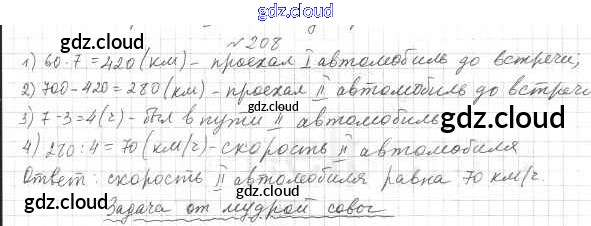 gdz.cloud
№ 208
1) 60 · 7 = 420 (км) - проехал I автомобиль до встречи;
2) 700 - 420 = 280 (км) - проехал II автомобиль до встречи
3) 7 - 3 = 4 (ч) - был в пути II автомобиль
4) 280 : 4 = 70 (км/ч) - скорость II автомобиля
Ответ: скорость II автомобиля равна 70 км/ч.
Задача от мудрой совы
gdz.cloud
gdz.cloud
gdz.cloud
gdz.cloud
gdz.cloud
gdz.cloud
gdz.cloud
gdz.cloud